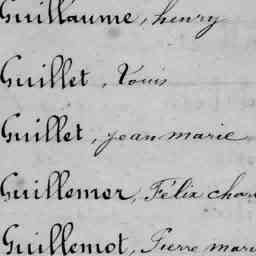 Guillaume, henry
Guillet, Louis
Guillet, jean marie
Guillemer, Félix char
Guillemot, Pierre mari